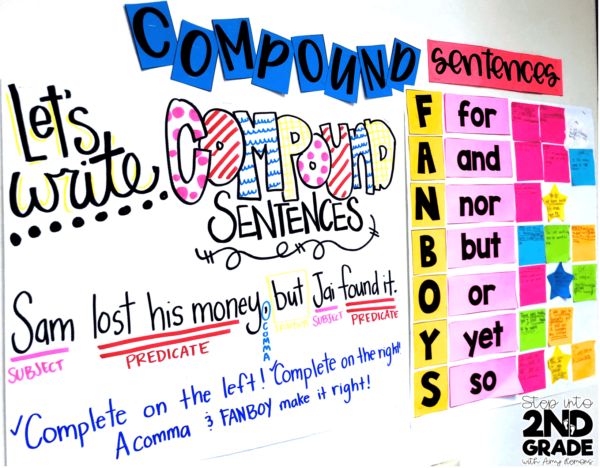 COMPOUND sentences
Let's
write
COMPOUND
SENTENCES
Sam lost his money, but Jai found it.
SUBJECT PREDICATE COMMA FANBOY SUBJECT PREDICATE
✓Complete on the left! ✓Complete on the right!
A comma & FANBOY make it right!
F for
A and
N nor
B but
O or
Y yet
S so
Step into
2ND
GRADE
with Amy Lemons